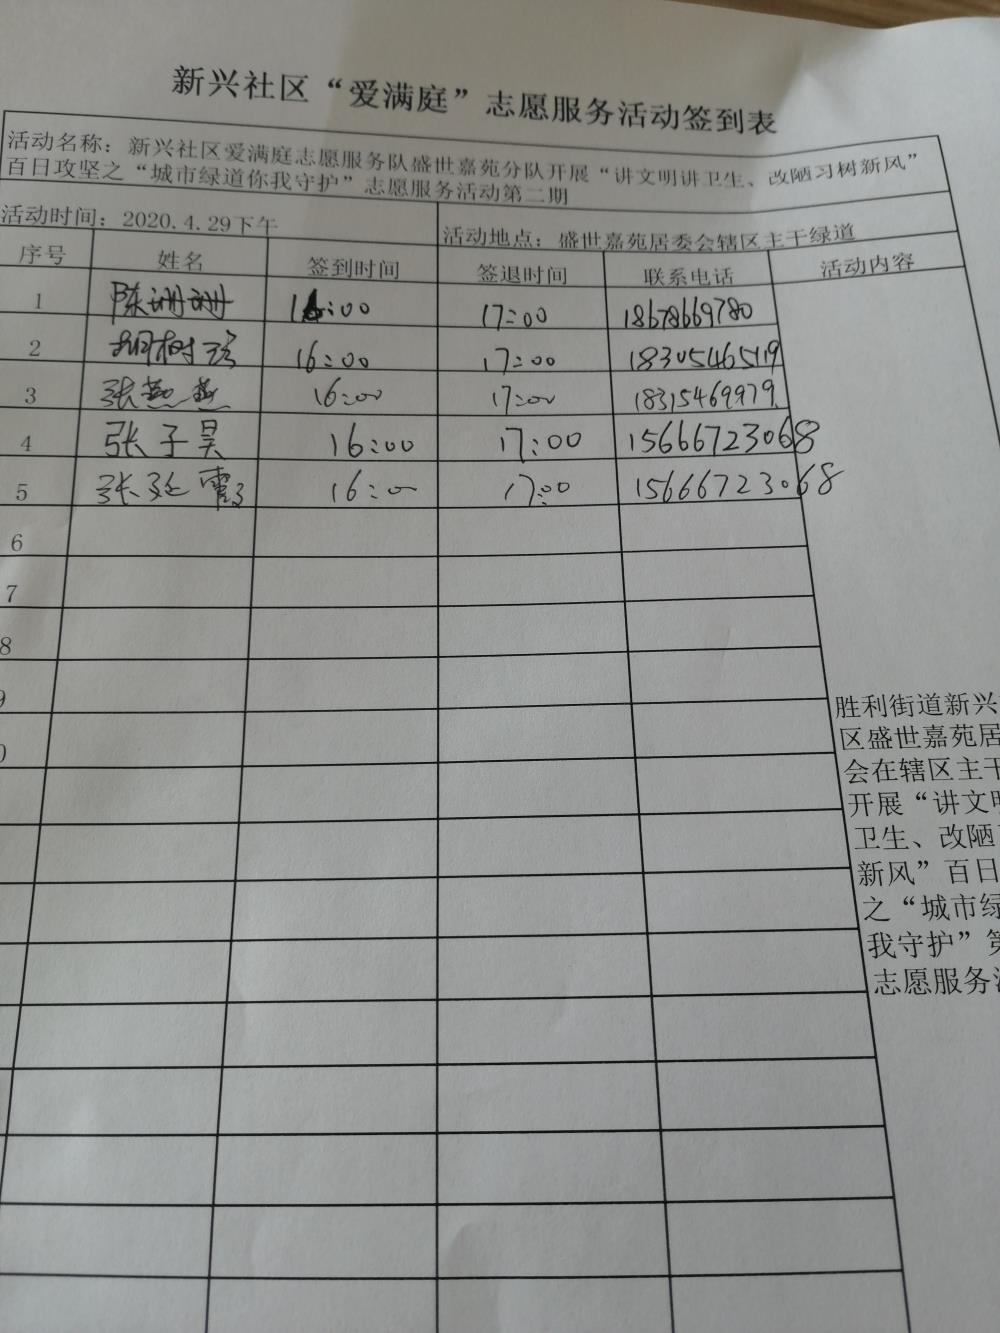 新兴社区“爱满庭”志愿服务活动签到表
活动名称：新兴社区爱满庭志愿服务队盛世嘉苑分队开展“讲文明讲卫生、改陋习树新风”
百日攻坚之“城市绿道你我守护”志愿服务活动第二期
活动时间：2020.4.29下午 活动地点：盛世嘉苑居委会辖区主干绿道
序号 姓名 签到时间 签退时间 联系电话 活动内容
1 陈珊珊 16:00 17:00 18678669780
2 16:00 17:00 18305465119
3 张燕燕 16:00 17:00 18315469979
4 张子昊 16:00 17:00 15666723068
5 张 16:00 17:00 15666723068
6
7
8
9
0
胜利街道新兴
区盛世嘉苑居
会在辖区主干
开展“讲文明
卫生、改陋
新风”百日
之“城市绿
我守护”第
志愿服务活